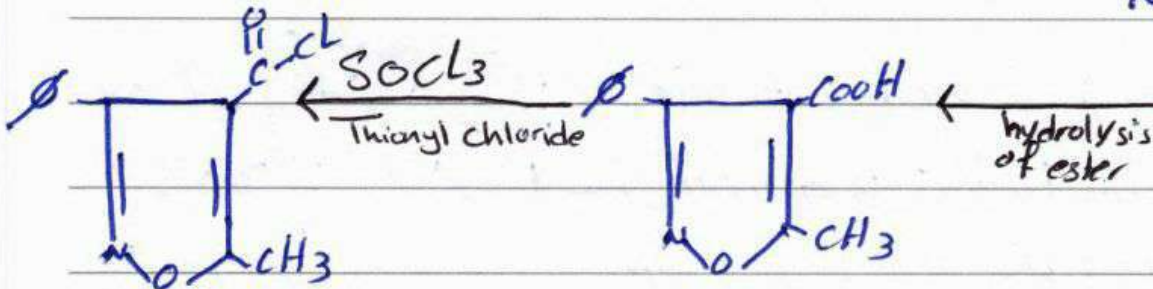 O
C
CL
Ø
SOCL3
Thionyl chloride
N
O
CH3
Ø
COOH
hydrolysis
of ester
N
O
CH3